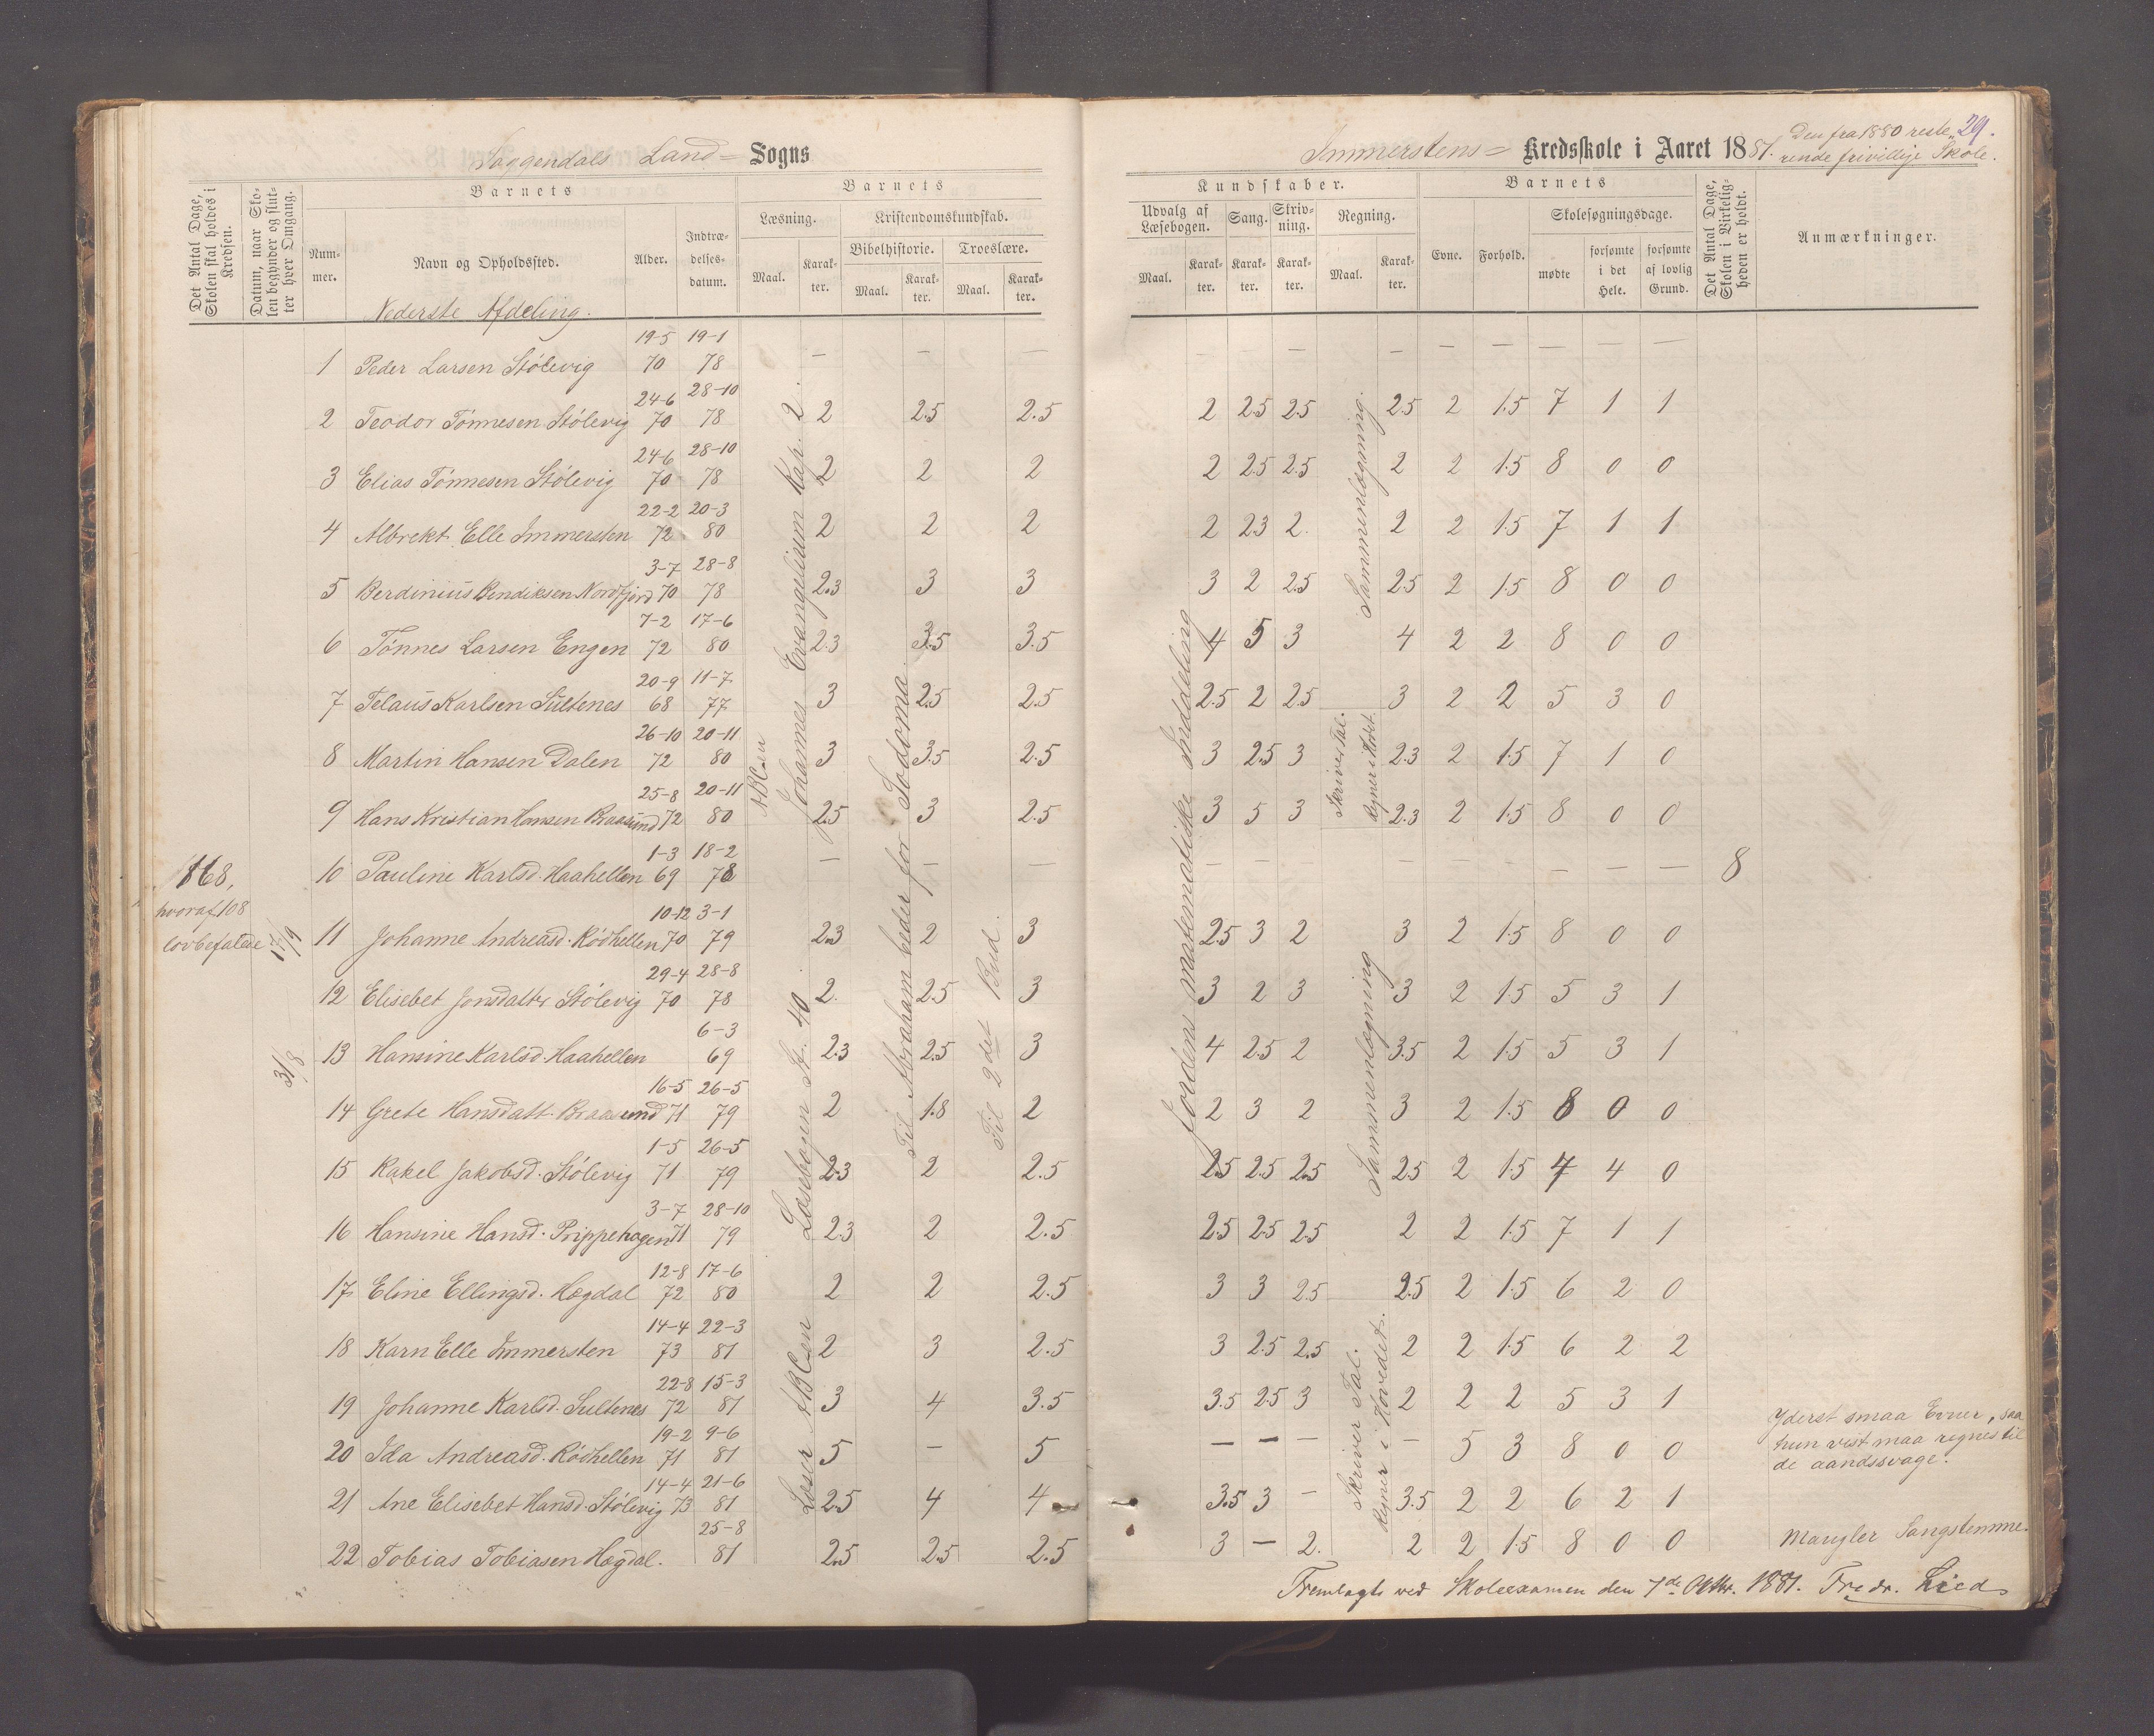 Soggendals Land= Sogns
Immerstens= Kredsskole i Aaret 1881. Den fra 1880 reste- 29.
rende frivillige Skole.
Det Antal Dage, Skolen skal holdes i Kredsen.
Datum, naar Skolen begynder og slutter hver Omgang.
Barnets
Nummer.
Navn og Opholdssted.
Alder.
Indtrædelsesdatum.
Barnets
Læsning.
Kristendomskundskab.
Bibelhistorie.
Troeslære.
Maal. Karakter. Maal. Karakter. Maal. Karakter.
Kundskaber.
Udvalg af Læsebogen. Sang. Skrivning. Regning.
Maal. Karakter. Karakter. Karakter. Maal. Karakter.
Barnets
Evne. Forhold.
Skolesøgningsdage.
mødte
forsømte i det Hele.
forsømte af lovlig Grund.
Det Antal Dage, Skolen i Virkeligheden er holdt.
Anmærkninger.
Nederste Afdeling.
1 Peder Larsen Stölevig 19-5 70 19-1 78 — — — — — — — — — — —
2 Teodor Tönnesen Stölevig 24-6 70 28-10 78 2 2.5 2.5 2 2.5 2.5 2.5 2 1.5 7 1 1
3 Elias Tönnesen Stölevig 24-6 70 28-10 78 2 2 2 2 2.5 2.5 2 2 1.5 8 0 0
4 Albrekt Elle Immersten 22-2 72 20-3 80 2 2 2 2 2.3 2. 2 2 1.5 7 1 1
5 Berdinius Bendiksen Nordfjord 3-7 70 28-8 78 2.3 3 3 3 2 2.5 2.5 2 1.5 8 0 0
6 Tönnes Larsen Engen 7-2 72 17-6 80 2.3 3.5 3.5 4 5 3 4 2 2 8 0 0
7 Telaus Karlsen Sultenes 20-9 68 11-7 77 3 2.5 2.5 2.5 2 2.5 3 2 2 5 3 0
8 Martin Hansen Dalen 26-10 72 20-11 80 3 3.5 2.5 3 2.5 3 2.3 2 1.5 7 1 0
9 Hans Kristian Hansen Braasund 25-8 72 20-11 80 2.5 3 2.5 3 5 3 2.3 2 1.5 8 0 0
10 Pauline Karlsd. Haahellen 1-3 69 18-2 78 — — — — — — — — — — — — 8
168,
hvoraf 108
lovbefalede
17/9
31/8
11 Johanne Andreasd. Rödhellen 10-12 70 3-1 79 2.3 2 3 2.5 3 2 3 2 1.5 8 0 0
12 Elisebet Jonsdattr Stölevig 29-4 70 28-8 78 2. 2.5 3 3 2 3 3 2 1.5 5 3 1
13 Hansine Karlsd. Haahellen 6-3 69 2.3 2.5 3 4 2.5 2 3.5 2 1.5 5 3 1
14 Grete Hansdatt. Braasund 16-5 71 26-5 79 2 1.8 2 2 3 2 3 2 1.5 8 0 0
15 Rakel Jakobsd. Stölevig 1-5 71 26-5 79 2.3 2 2.5 2.5 2.5 2.5 2.5 2 1.5 4 4 0
16 Hansine Hansd. Prippehagen 3-7 71 28-10 79 2.3 2 2.5 2.5 2.5 2.5 2 2 1.5 7 1 1
17 Eline Ellingsd. Hægdal 12-8 72 17-6 80 2 2 2.5 3 3 2.5 2.5 2 1.5 6 2 0
18 Karn Elle Immersten 14-4 73 22-3 81 2 3 2.5 3 2.5 2.5 2 2 1.5 6 2 2
19 Johanne Karlsd. Sultenes 22-8 72 15-3 81 3 4 3.5 3.5 2.5 3 2 2 2 5 3 1
20 Ida Andreasd. Rödhellen 19-2 71 9-6 81 5 — 5 — — — — 5 3 8 0 0 Yderst smaa Evner, saa
hun vist maa regnes til
de aandssvage.
21 Ane Elisebet Hansd. Stölevig 14-4 73 21-6 81 2.5 4 4 3.5 3 — 3.5 2 2 6 2 1
22 Tobias Tobiasen Hægdal. 25-8 81 2.5 2.5 2.5 3 — 2. 2 2 1.5 8 0 0 Mangler Sangstemme.
Johannes Evangelium Kap. 2.
ABCen
Læsebogen St. 40
Læser ABCen
Til Abraham beder for Sodoma.
Til 2det Bud.
Jordens matematiske Inddeling
Sammenlægning.
Skriver Tal.
Regner i Hovdt.
Sammenlægning
Skriver Tal.
Regner i Hovedet.
Fremlagt ved Skoleexamen den 7de Oktbr. 1881. Fredr. Lied